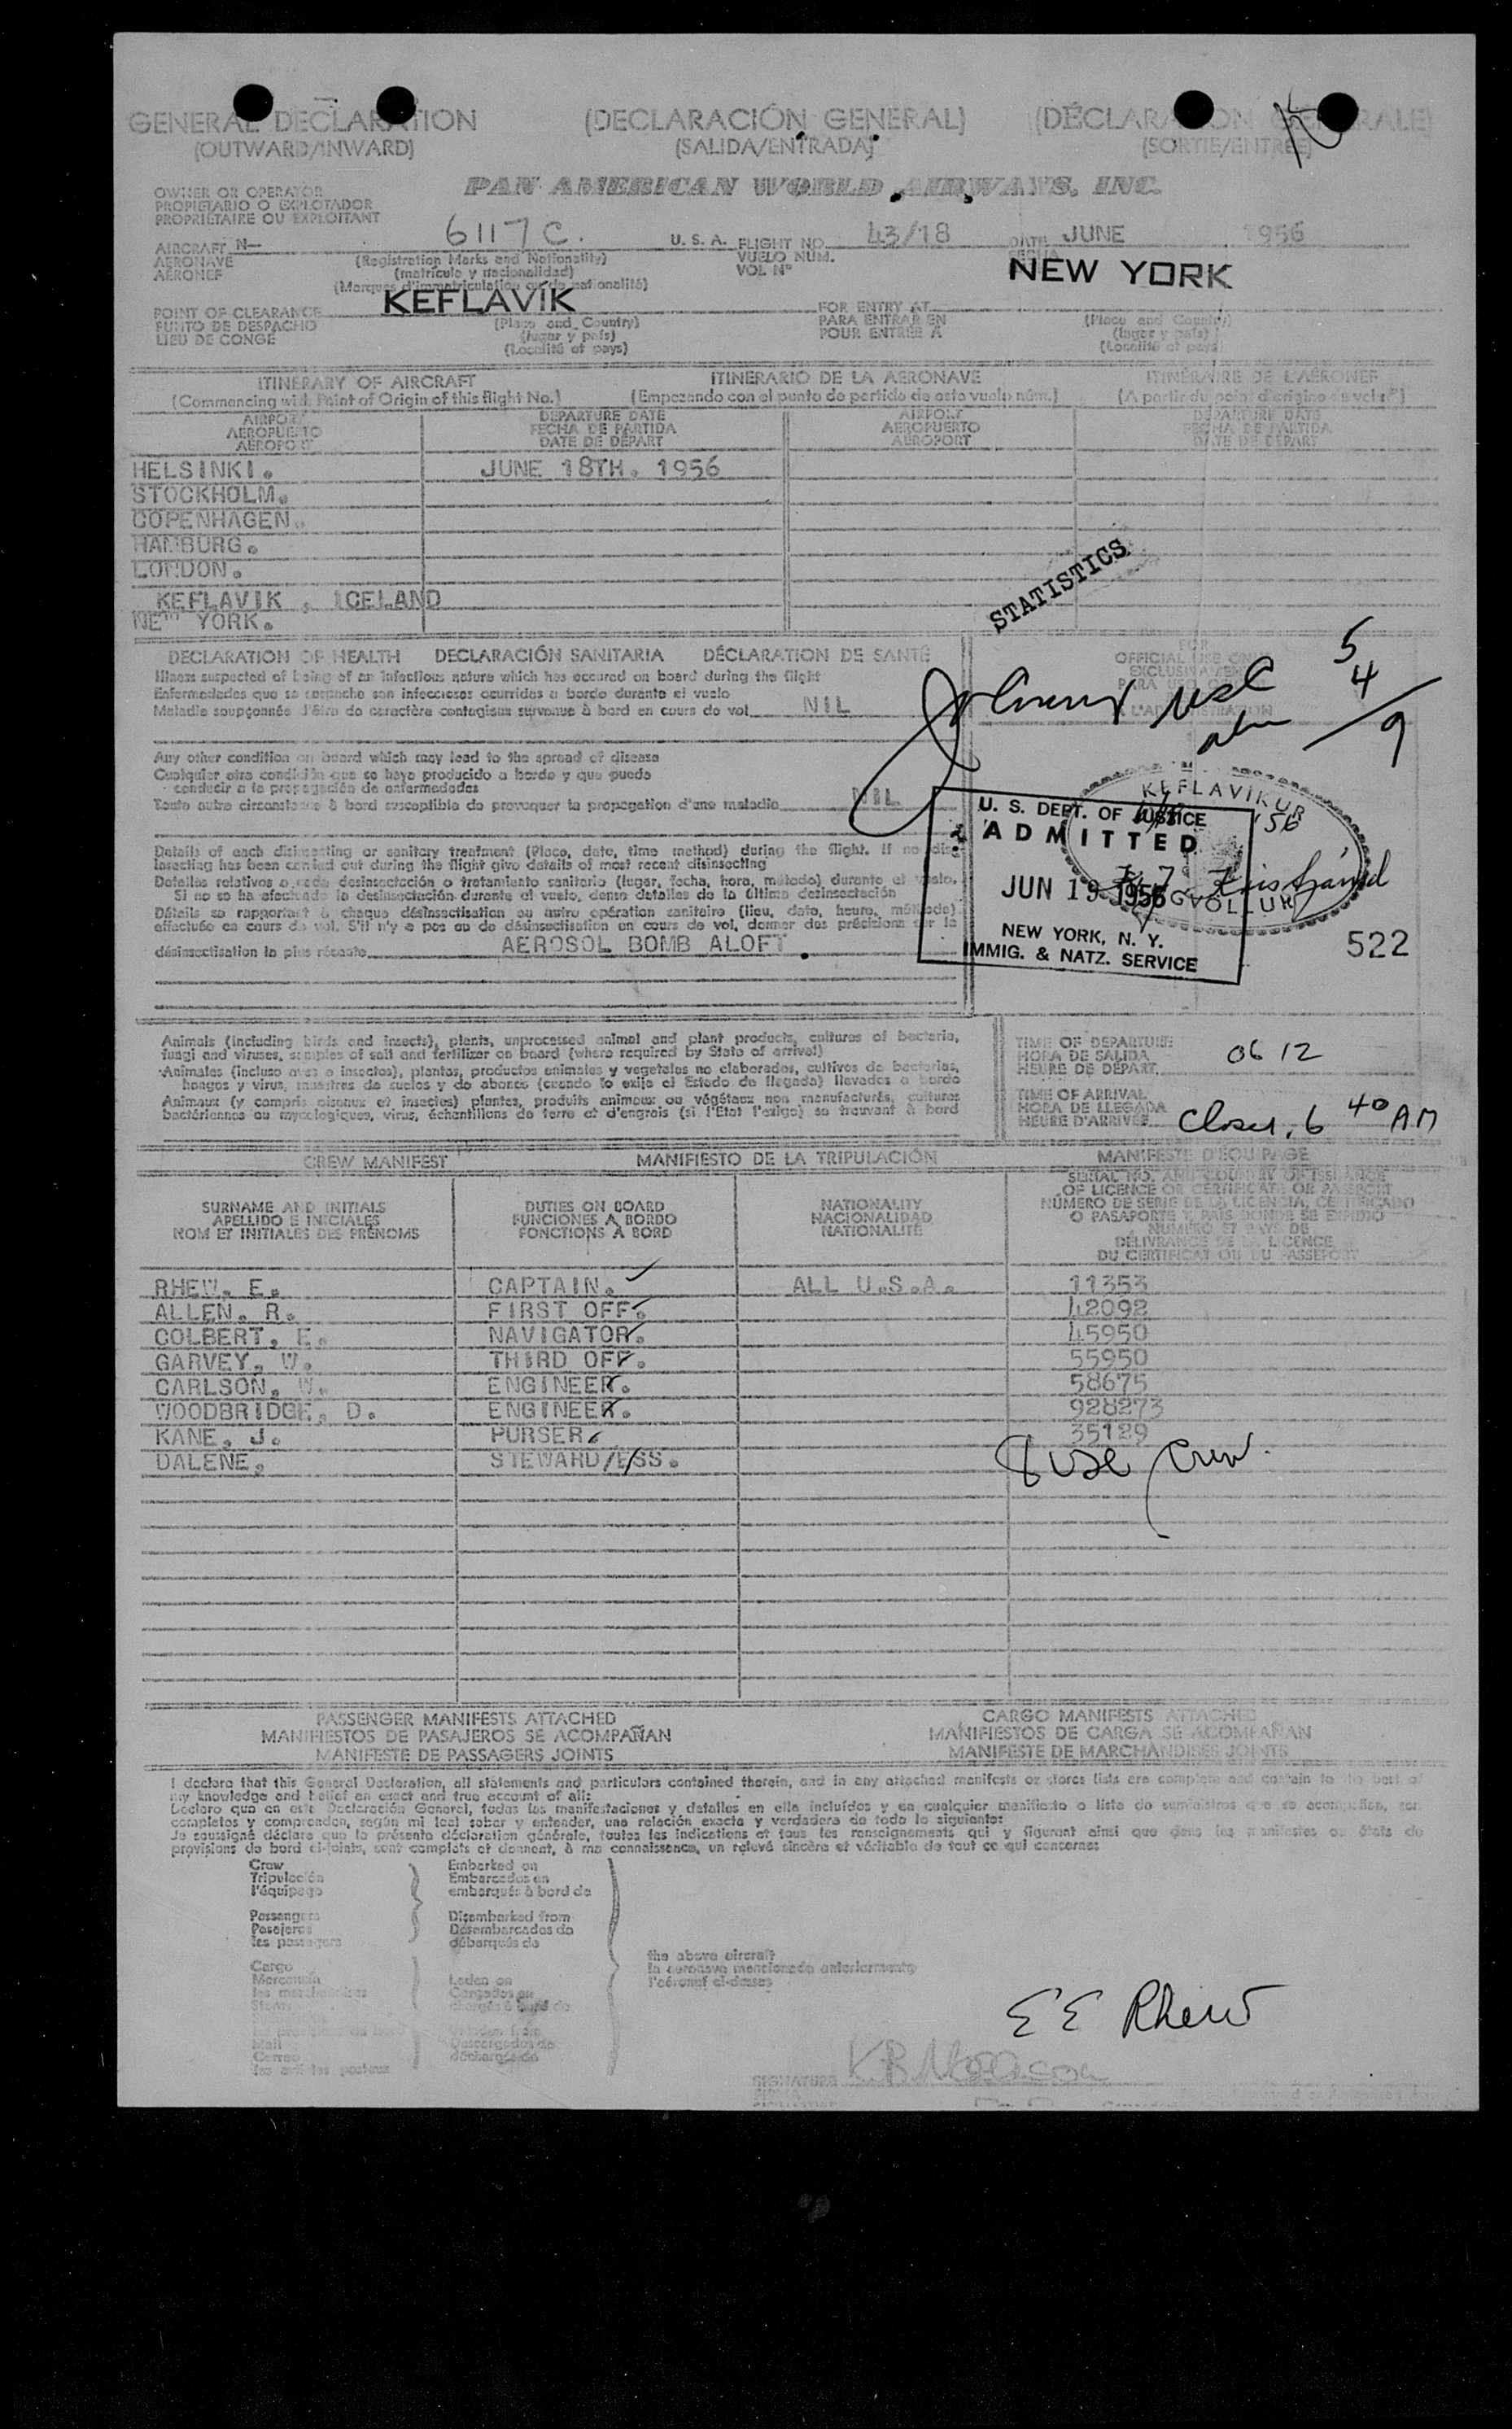 GENERAL DECLARATION (DECLARACIÓN GENERAL) (DÉCLARATION GÉNÉRALE)
(OUTWARD/INWARD) (SALIDA/ENTRADA) (SORTIE/ENTRÉE)
PAN AMERICAN WORLD AIRWAYS, INC.
OWNER OR OPERATOR
PROPIETARIO O EXPLOTADOR
PROPRIÉTAIRE OU EXPLOITANT
AIRCRAFT N— 6117C. U. S. A. FLIGHT NO. 43/18 DATE JUNE 1956
AERONAVE (Registration Marks and Nationality) VUELO NÚM. FECHA
AÉRONEF (matrícula y nacionalidad) VOL Nº
(Marques d'immatriculation ou de nationalité)
KEFLAVIK NEW YORK
POINT OF CLEARANCE (Place and Country) FOR ENTRY AT (Place and Country)
PUNTO DE DESPACHO (lugar y país) PARA ENTRAR EN (lugar y país)
LIEU DE CONGÉ (Localité et pays) POUR ENTRÉE À (Localité et pays)
ITINERARY OF AIRCRAFT ITINERARIO DE LA AERONAVE ITINÉRAIRE DE L'AÉRONEF
(Commencing with Point of Origin of this flight No.) (Empezando con el punto de partida de este vuelo núm.) (A partir du point d'origine du vol nº)
AIRPORT DEPARTURE DATE AIRPORT DEPARTURE DATE
AEROPUERTO FECHA DE PARTIDA AEROPUERTO FECHA DE PARTIDA
AÉROPORT DATE DE DÉPART AÉROPORT DATE DE DÉPART
HELSINKI. JUNE 18TH. 1956
STOCKHOLM.
COPENHAGEN.
HAMBURG.
LONDON.
KEFLAVIK , ICELAND
NEW YORK.
STATISTICS
DECLARATION OF HEALTH DECLARACIÓN SANITARIA DÉCLARATION DE SANTÉ
FOR
OFFICIAL USE ONLY
Illness suspected of being of an infectious nature which has occured on board during the flight
Enfermedades que se sospecha son infecciosas ocurridas a bordo durante el vuelo
Maladie soupçonnée d'être de caractère contagieux survenue à bord en cours de vol NIL
5
4
9
Any other condition on board which may lead to the spread of disease
Cualquier otra condición que se haya producido a bordo y que pueda
conducir a la propagación de enfermedades
Toute autre circonstance à bord susceptible de provoquer la propagation d'une maladie NIL
Details of each disinsecting or sanitary treatment (Place, date, time method) during the flight. If no disinsecting has been carried out during the flight give details of most recent disinsecting
Detalles relativos a cada desinsectación o tratamiento sanitario (lugar, fecha, hora, método) durante el vuelo.
Si no se ha efectuado la desinsectación durante el vuelo, dense detalles de la última desinsectación
Détails se rapportant à chaque désinsectisation ou autre opération sanitaire (lieu, date, heure, méthode)
effectuée en cours de vol. S'il n'y a pas eu de désinsectisation en cours de vol, donner des précisions sur la
désinsectisation la plus récente AEROSOL BOMB ALOFT .
KEFLAVIKUR
U. S. DEPT. OF JUSTICE
ADMITTED
JUN 19 1956
NEW YORK, N. Y.
IMMIG. & NATZ. SERVICE
522
Animals (including birds and insects), plants, unprocessed animal and plant products, cultures of bacteria,
fungi and viruses, samples of soil and fertilizer on board (where required by State of arrival)
Animales (incluso aves o insectos), plantas, productos animales y vegetales no elaborados, cultivos de bacterias,
hongos y virus, muestras de suelos y de abonos (cuando lo exija el Estado de llegada) llevados a bordo
Animaux (y compris oiseaux et insectes) plantes, produits animaux ou végétaux non manufacturés, cultures
bactériennes ou mycologiques, virus, échantillons de terre et d'engrais (si l'Etat l'exige) se trouvant à bord
TIME OF DEPARTURE
HORA DE SALIDA
HEURE DE DÉPART 0612
TIME OF ARRIVAL
HORA DE LLEGADA
HEURE D'ARRIVÉE 6 40 AM
CREW MANIFEST MANIFIESTO DE LA TRIPULACIÓN MANIFESTE D'ÉQUIPAGE
SURNAME AND INITIALS DUTIES ON BOARD NATIONALITY SERIAL NO. AND COUNTRY OF ISSUANCE
APELLIDO E INICIALES FUNCIONES A BORDO NACIONALIDAD OF LICENCE OR CERTIFICATE OR PASSPORT
NOM ET INITIALES DES PRÉNOMS FONCTIONS À BORD NATIONALITÉ NÚMERO DE SERIE DE LA LICENCIA, CERTIFICADO
O PASAPORTE Y PAÍS DONDE SE EXPIDIÓ
NUMÉRO ET PAYS DE
DÉLIVRANCE DE LA LICENCE
DU CERTIFICAT OU DU PASSEPORT
RHEW. E. CAPTAIN. ALL U.S.A. 11353
ALLEN. R. FIRST OFF. 42092
COLBERT, E. NAVIGATOR. 45950
GARVEY, W. THIRD OFF. 55950
CARLSON, W. ENGINEER. 58675
WOODBRIDGE, D. ENGINEER. 928273
KANE, J. PURSER. 35129
DALENE, STEWARD/ESS.
8 USC Crew.
PASSENGER MANIFESTS ATTACHED CARGO MANIFESTS ATTACHED
MANIFIESTOS DE PASAJEROS SE ACOMPAÑAN MANIFIESTOS DE CARGA SE ACOMPAÑAN
MANIFESTE DE PASSAGERS JOINTS MANIFESTE DE MARCHANDISES JOINTS
I declare that this General Declaration, all statements and particulars contained therein, and in any attached manifests or stores lists are complete and contain to the best of
my knowledge and belief an exact and true account of all:
Declaro que en este Declaración General, todas las manifestaciones y detalles en ella incluídos y en cualquier manifiesto o lista de suministros que se acompañan, son
completos y comprenden, según mi leal saber y entender, una relación exacta y verdadera de todo lo siguiente:
Je soussigné déclare que la présente déclaration générale, toutes les indications et tous les renseignements qui y figurent ainsi que dans les manifestes ou états de
provisions de bord ci-joints, sont complets et donnent, à ma connaissance, un relevé sincère et véritable de tout ce qui concerne:
Crew Embarked on
Tripulación Embarcados en
l'équipage embarqués à bord de
Passengers Disembarked from
Pasajeros Desembarcados de
les passagers débarqués de
the above aircraft
la aeronave mencionada anteriormente
l'aéronef ci-dessus
Cargo
Mercancía Laden on
les marchandises Cargados en
Stores chargés à bord de
Mail Descargados de
Correo déchargés de
E E Rhew
SIGNATURE